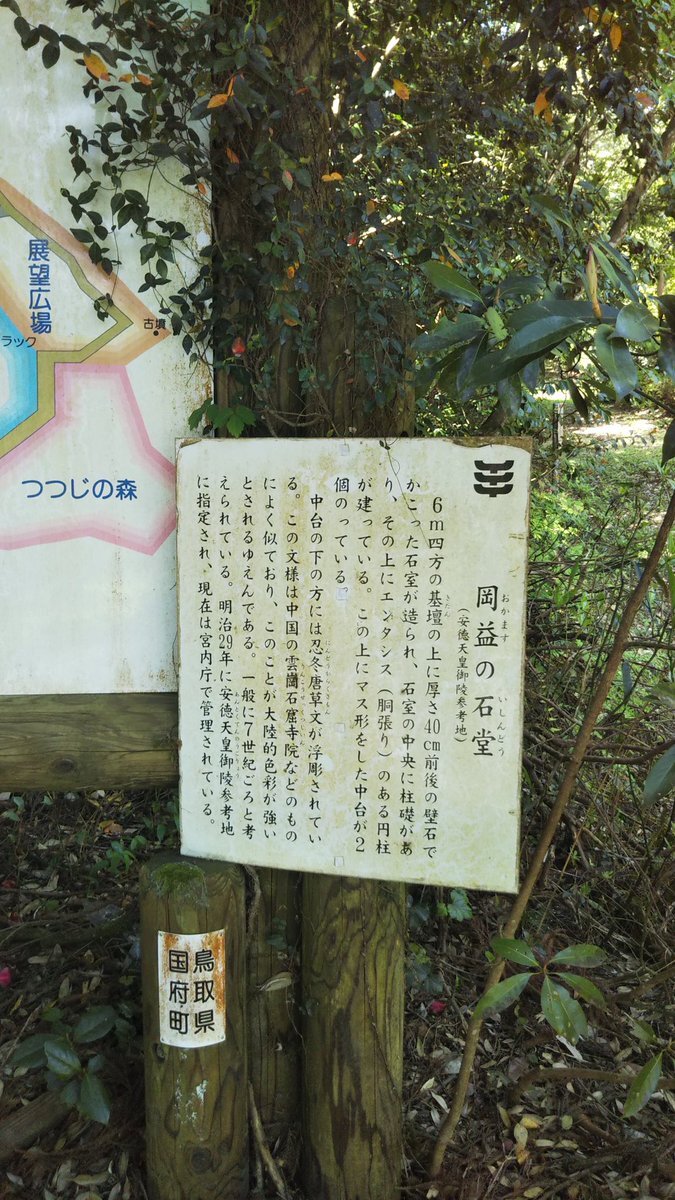 展望広場
ラック
古墳
つつじの森
岡益の石堂
おかます
いしんどう
(安徳天皇御陵参考地)
6m四方の基壇の上に厚さ40cm前後の壁石で
きだん
かこった石室が造られ、石室の中央に柱礎があ
り、その上にエンタシス(胴張り)のある円柱
が建っている。この上にマス形をした中台が2
個のっている。
中台の下の方には忍冬唐草文が浮彫されてい
にんどうからくさもん
る。この文様は中国の雲崗石窟寺院などのもの
によく似ており、このことが大陸的色彩が強い
とされるゆえんである。一般に7世紀ごろと考
えられている。明治29年に安徳天皇御陵参考地
に指定され、現在は宮内庁で管理されている。
鳥取県
国府町